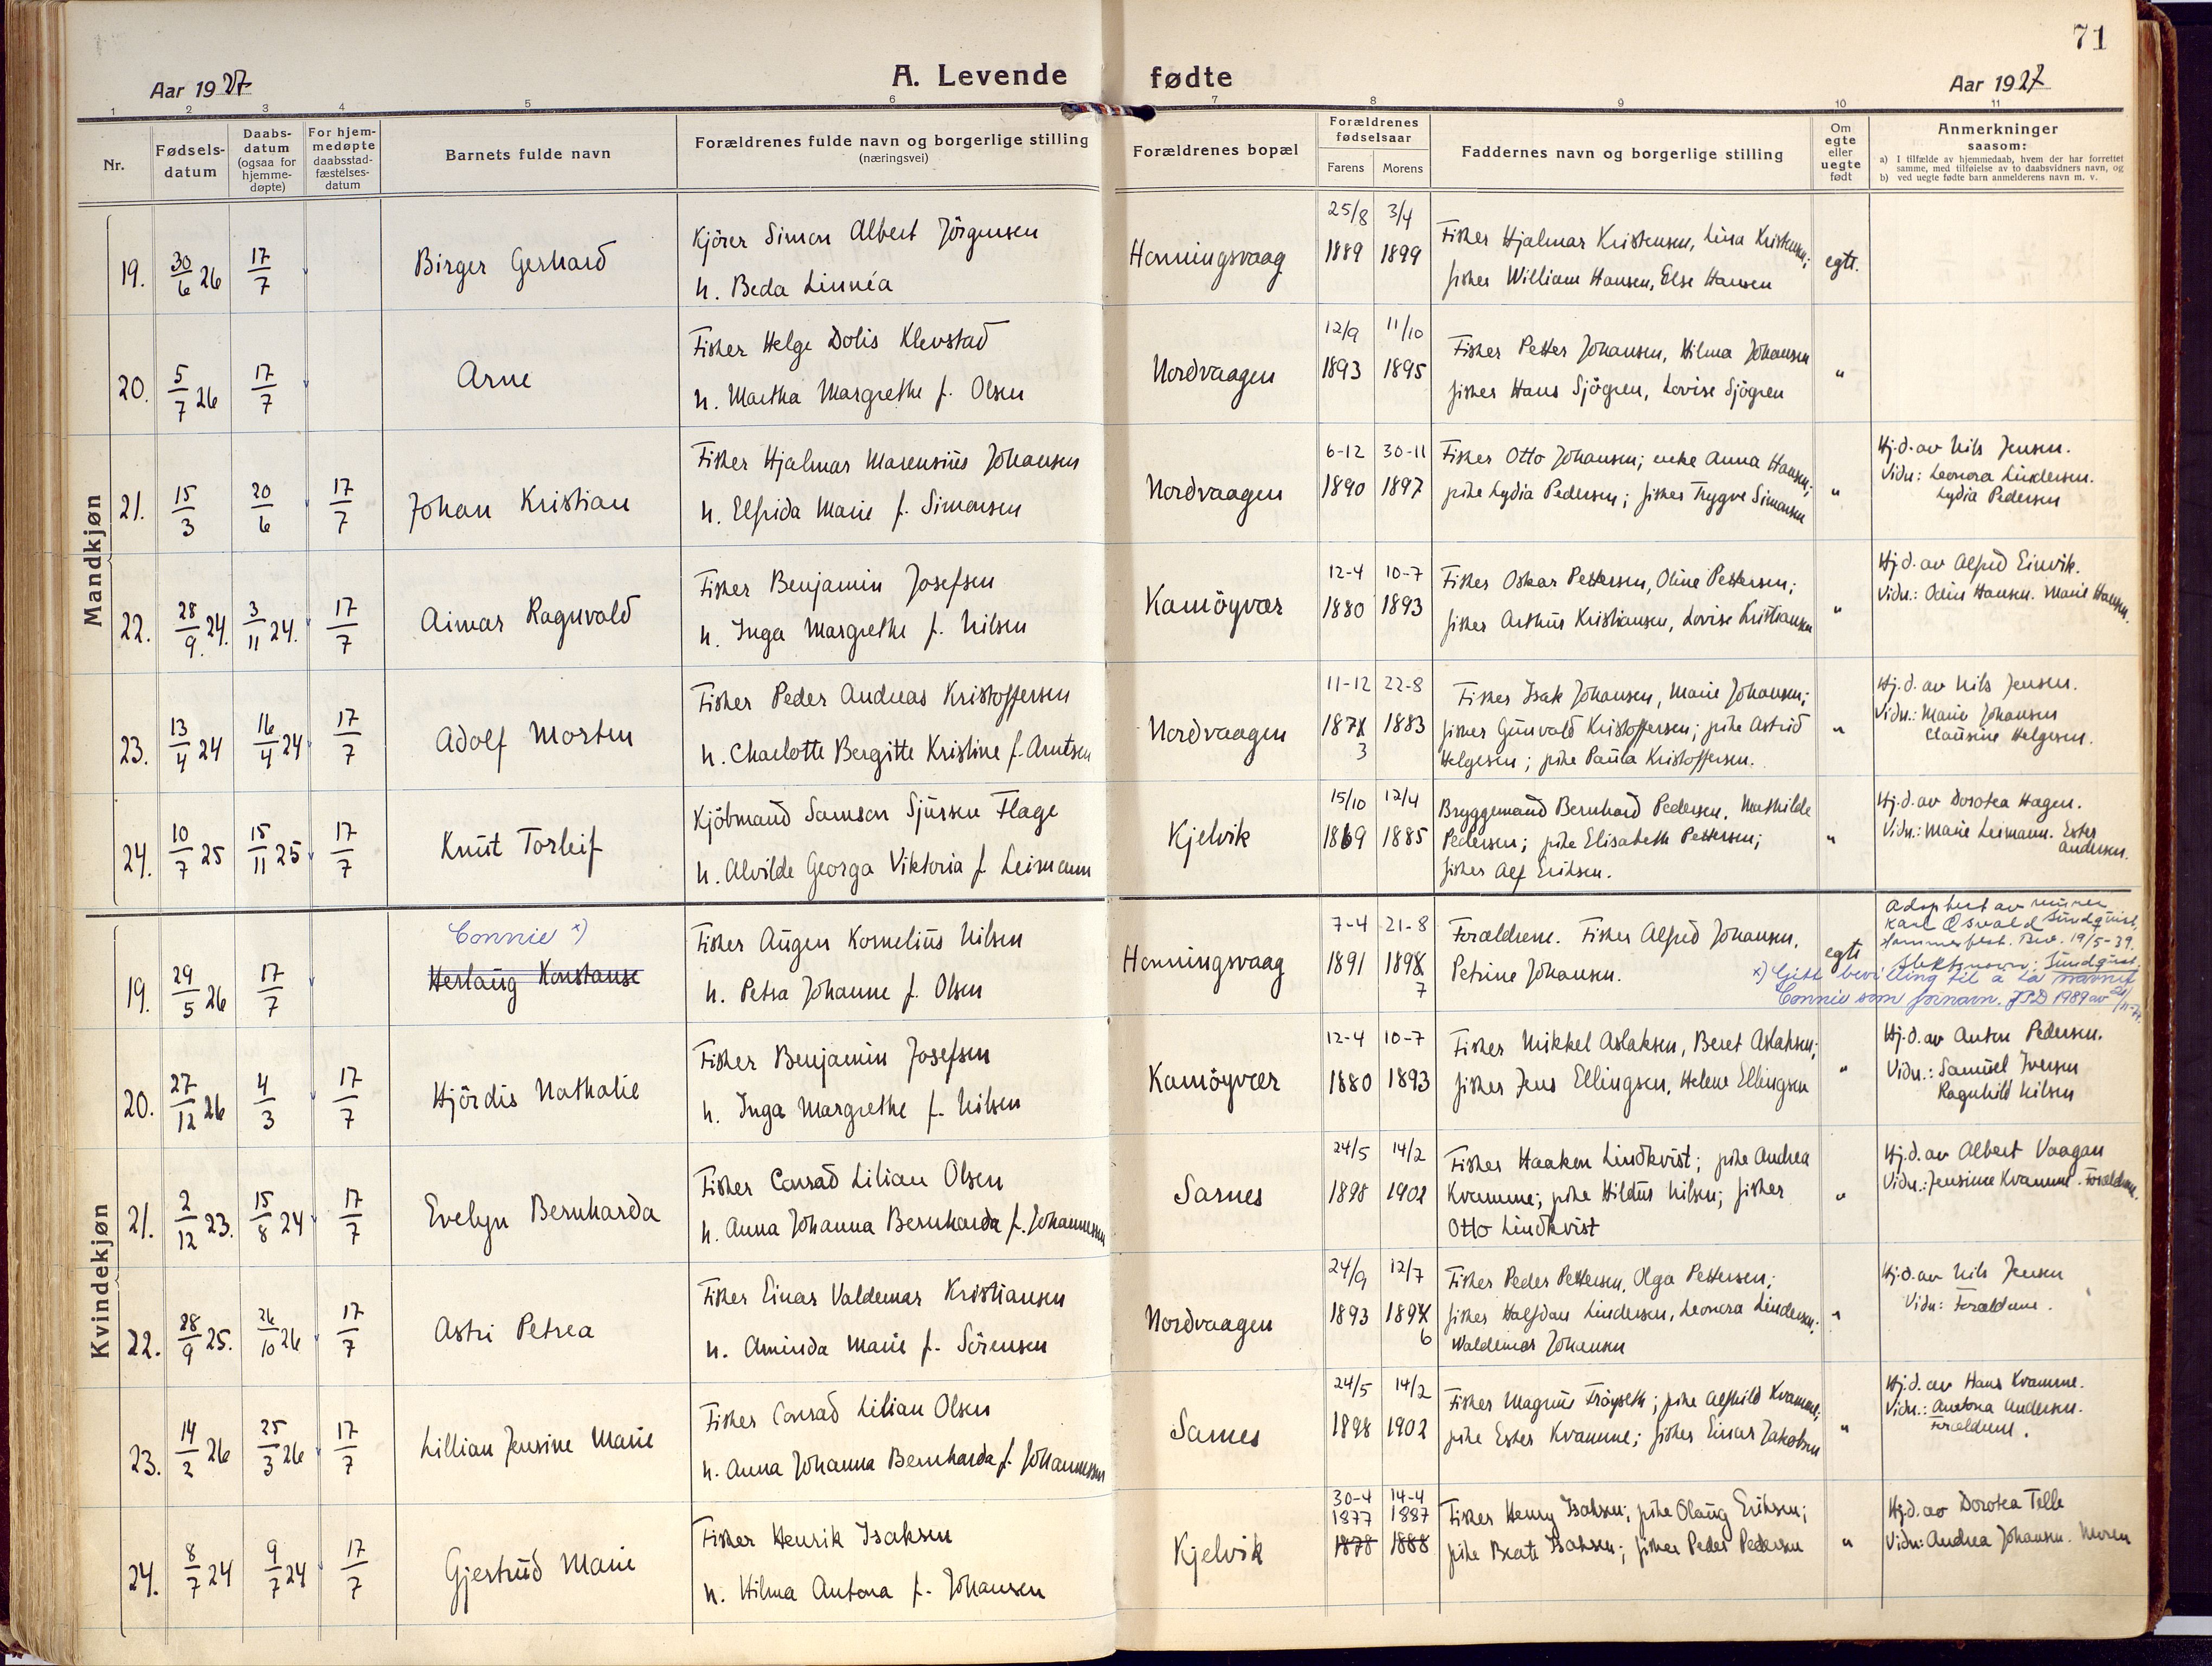 71
A. Levende fødte
Aar 1927
Aar 1927
1 2 3 4 5 6 7 8 9 10 11
Nr.
Fødsels-
datum
Daabs-
datum
(ogsaa for
hjemme-
døpte)
For hjem-
medøpte
daabsstad-
fæstelses-
datum
Barnets fulde navn
Forældrenes fulde navn og borgerlige stilling
(næringsvei)
Forældrenes bopæl
Forældrenes
fødselsaar
Farens Morens
Faddernes navn og borgerlige stilling
Om
egte
eller
uegte
født
Anmerkninger
saasom:
a) I tilfælde av hjemmedaab, hvem der har forrettet
samme, med tilføielse av to daabsvidners navn, og
b) ved uegte fødte barn anmelderens navn m. v.
Mandkjøn
19. 30/6 26 17/7 Birger Gerhard
Kjörer Simon Albert Jörgensen
h. Beda Linnéa
Honningsvaag
25/8 3/4
1889 1899
Fisker Hjalmar Kristensen, Lina Kristensen;
fisker William Hansen, Else Hansen
egte.
20. 5/7 26 17/7 Arne
Fisker Helge Dolis Klevstad
h. Martha Margrethe f. Olsen
Nordvaagen
12/9 11/10
1893 1895
Fisker Petter Johansen, Hilma Johansen
fisker Hans Sjögren, Lovise Sjögren
"
21. 15/3 20/6 17/7 Johan Kristian
Fisker Hjalmar Marensius Johansen
h. Elfrida Marie f. Simonsen
Nordvaagen
6-12 30-11
1890 1897
Fisker Otto Johansen; enke Anna Hansen;
pike Lydia Pedersen; fisker Trygve Simonsen
"
Hj.d. av Nils Jensen.
Vidn: Leonora Lindersen.
Lydia Pedersen
22. 28/9 24. 3/11 24. 17/7 Aimar Ragnvald
Fisker Benjamin Josefsen
h. Inga Margrethe f. Nilsen
Kamöyvær
12-4 10-7
1880 1893
Fisker Oskar Pettersen, Oline Pettersen;
fisker Arthur Kristiansen, Lovise Kristiansen
"
Hj.d. av Alfred Einvik.
Vidn.: Odin Hansen. Marie Hansen.
23. 13/4 24 16/4 24 17/7 Adolf Morten
Fisker Peder Andreas Kristoffersen
h. Charlotte Bergitte Kristine f. Arntsen
Nordvaagen
11-12 22-8
1871 1883
3
Fisker Isak Johansen, Marie Johansen;
fisker Gunvald Kristoffersen; pike Astrid
Helgesen; pike Paula Kristoffersen.
"
Hj.d. av Nils Jensen.
Vidn.: Marie Johansen
Clausine Helgesen.
24. 10/7 25 15/11 25 17/7 Knut Torleif
Kjöbmand Samson Sjursen Flage
h. Alvilde Georga Viktoria f. Leimann
Kjelvik
15/10 12/4
1869 1885
Bryggemand Bernhard Pedersen, Mathilde
Pedersen; pike Elisabeth Pettersen;
fisker Alf Eriksen.
"
Hj.d. av Dorotea Hagen.
Vidn.: Marie Leimann. Ester
Andersen.
Kvindekjøn
Connie x)
19. 29/5 26 17/7 Herlaug Konstanse
Fisker Augen Kornelius Nilsen
h. Petra Johanne f. Olsen
Honningsvaag
7-4 21-8
1891 1898
7
Forældrene. Fisker Alfred Johansen,
Petrine Johansen.
egte
Adoptert av murer
Karl Osvald Sundquist,
Hammerfest. Bev. 19/5-39.
Slektsnavn: Sundquist.
x) Gitt bevilling til å ta navnet
Connie som fornavn. JPD 1989 av
20. 27/12 26 4/3 17/7 Hjördis Nathalie
Fisker Benjamin Josefsen
h. Inga Margrethe f. Nilsen
Kamöyvær
12-4 10-7
1880 1893
Fisker Mikkel Aslaksen, Beret Aslaksen;
fisker Jens Ellingsen, Helene Ellingsen
"
Hj.d. av Anton Pedersen.
Vidn.: Samuel Iversen
Ragnhild Nilsen
21. 2/12 23. 15/8 24 17/7 Evelyn Bernharda
Fisker Conrad Lilian Olsen
h. Anna Johanna Bernharda f. Johannessen
Sarnes
24/5 14/2
1898 1902
Fisker Haakon Lindkvist; pike Andrea
Kvamme; pike Hildur Nilsen; fisker
Otto Lindkvist
"
Hj.d. av Albert Vaagan
Vidn.: Jensine Kvamme. Forældrene.
22. 28/9 25. 26/10 26 17/7 Astri Petrea
Fisker Einar Valdemar Kristiansen
h. Aminda Marie f. Sörensen
Nordvaagen
24/9 12/7
1893 1897
6
Fisker Peder Pettersen, Olga Pettersen;
fisker Halfdan Lindersen, Leonora Lindersen;
Waldemar Johansen
"
Hj.d. av Nils Jensen
Vidn: Forældrene.
23. 14/2 26 25/3 26 17/7 Lillian Jensine Marie
Fisker Conrad Lilian Olsen
h. Anna Johanna Bernharda f. Johannessen
Sarnes
24/5 14/2
1898 1902
Fisker Magnus Tröyseth; pike Alfhild Kvamme;
pike Ester Kvamme; fisker Einar Jakobsen
"
Hj.d. av Hans Kvamme.
Vidn.: Antona Andersen.
Forældrene.
24. 8/7 24 9/7 24 17/7 Gjertrud Marie
Fisker Henrik Isaksen
h. Hilma Antona f. Johansen
Kjelvik
30-4 14-4
1877 1887
1878 1888
Fisker Henry Isaksen; pike Olaug Eriksen;
pike Beate Isaksen; fisker Peder Pedersen
"
Hj.d. av Dorotea Telle
Vidn: Andrea Johansen. Moren